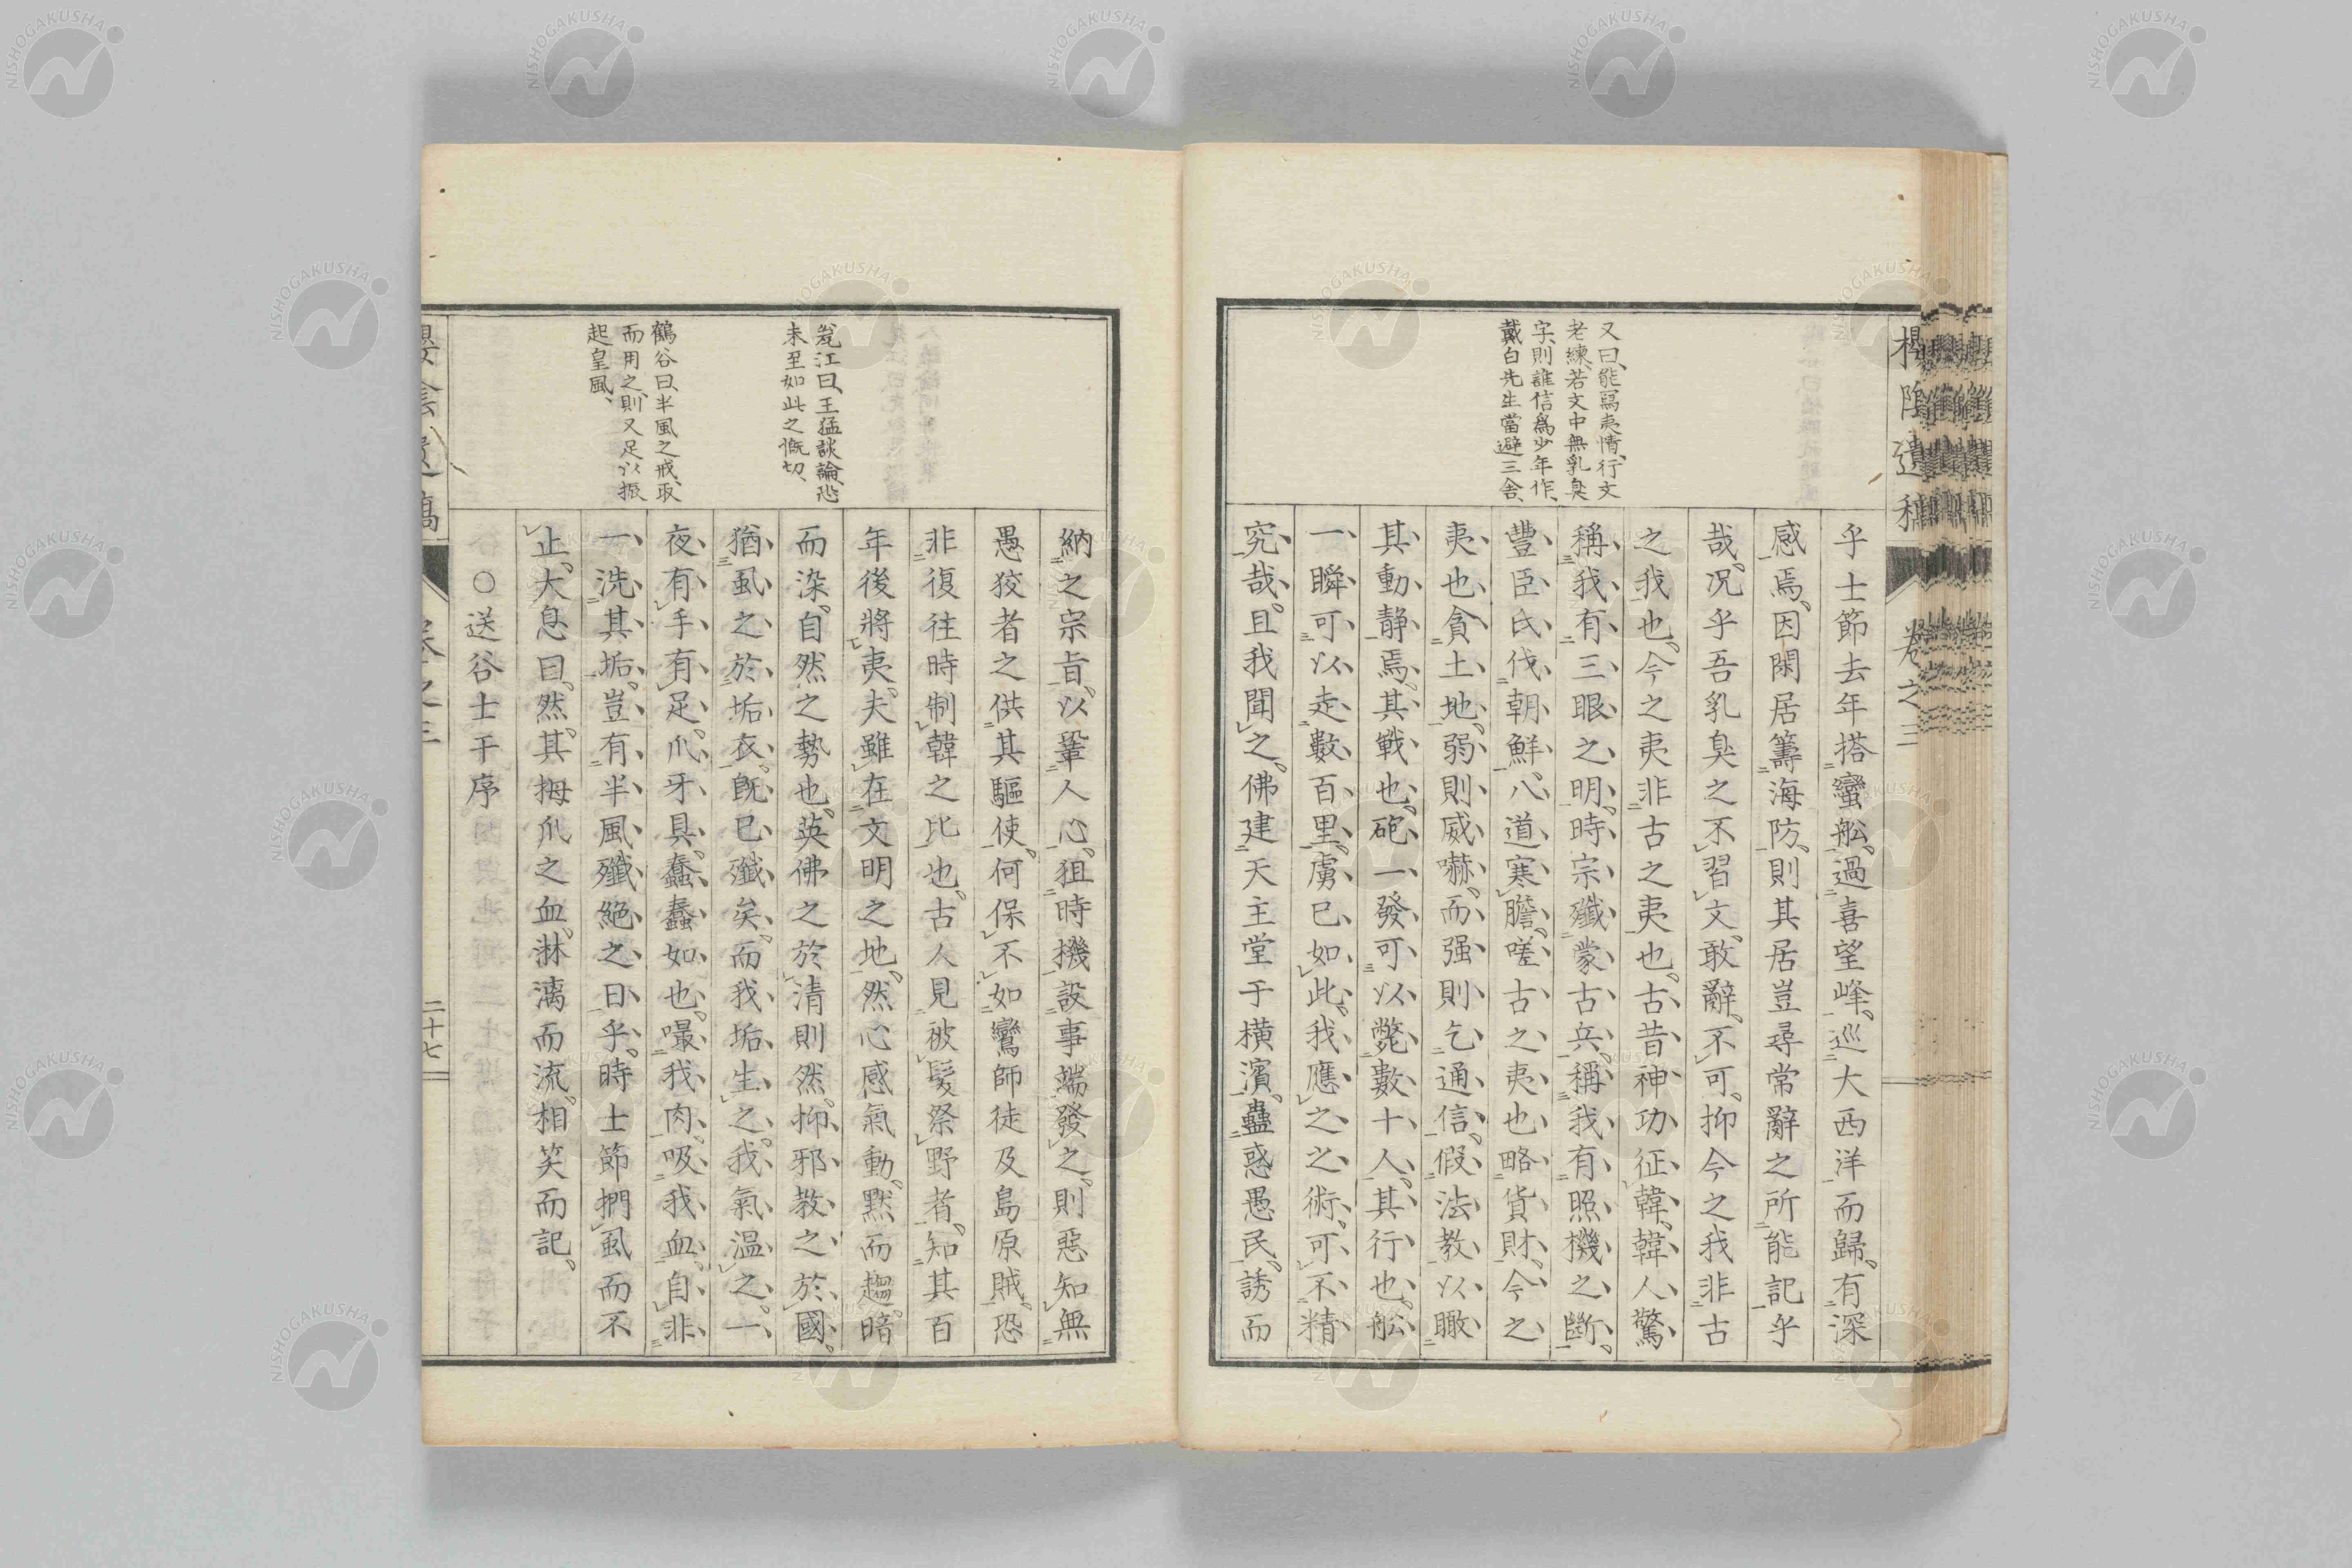 又曰、能寫夷情、行文
老練、若文中無乳臭
字、則誰信為少年作、
戴白先生當避三舍、
乎士節去年搭蠻舩、過喜望峰、巡大西洋而歸、有深
感焉、因閑居籌海防、則其居豈尋常辭之所能記乎
哉、况乎吾乳臭之不習文、敢辭、不可、抑今之我非古
之我也、今之夷非古之夷也、古昔神功征韓、韓人驚
稱我有三眼之明、時宗殲蒙古兵、稱我有照機之斷、
豐臣氏伐朝鮮、八道寒膽、嗟古之夷也略貨財、今之
夷也貪土地、弱則威嚇、而强則乞通信、假法教以瞰
其動静焉、其戰也、砲一發可以斃數十人、其行也、舩
一瞬可以走數百里、虜已如此、我應之之術、可不精
究哉、且我聞之、佛建天主堂于横濱、蠱惑愚民、誘而
櫻陰遺稿 卷之三
江曰、王猛談論恐
未至如此之慨切、
鶴谷曰、半風之戒、取
而用之、則又足以振
起皇風、
納之宗旨、以鞏人心、狙時機設事端發之、則惡知無
愚狡者之供其驅使、何保不如鸞師徒及島原賊、恐
非復往時制韓之比也、古人見被髮祭野者、知其百
年後將夷、夫雖在文明之地、然心感氣動、黙而趨暗
而染、自然之勢也、英佛之於清則然、抑邪教之於國、
猶虱之於垢衣、既已殲矣、而我垢生之、我氣温之、一
夜有手有足、爪牙具、蠢蠢如也、嘬我肉、吸我血、自非
一洗其垢、豈有半風殲絶之日乎、時士節捫虱而不
止、大息曰、然、其拇爪之血、淋漓而流、相笑而記、
○送谷士干序
櫻陰遺稿 卷之三 二十七